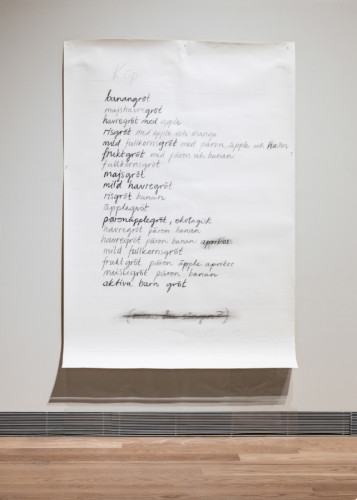 Köp
banangröt
majshavregröt
havregröt med äpple
risgröt med äpple och mango
mild fullkornsgröt med päron, äpple och
fruktgröt med päron och banan
fullkornsgröt
majsgröt
mild havregröt
risgröt banan
äpplegröt
päronäpplegröt, ekologisk
havregröt päron banan
havregröt päron banan aprikos
mild fullkornsgröt
fruktgröt päron äpple aprikos
majsgröt päron banan
aktiva barn gröt